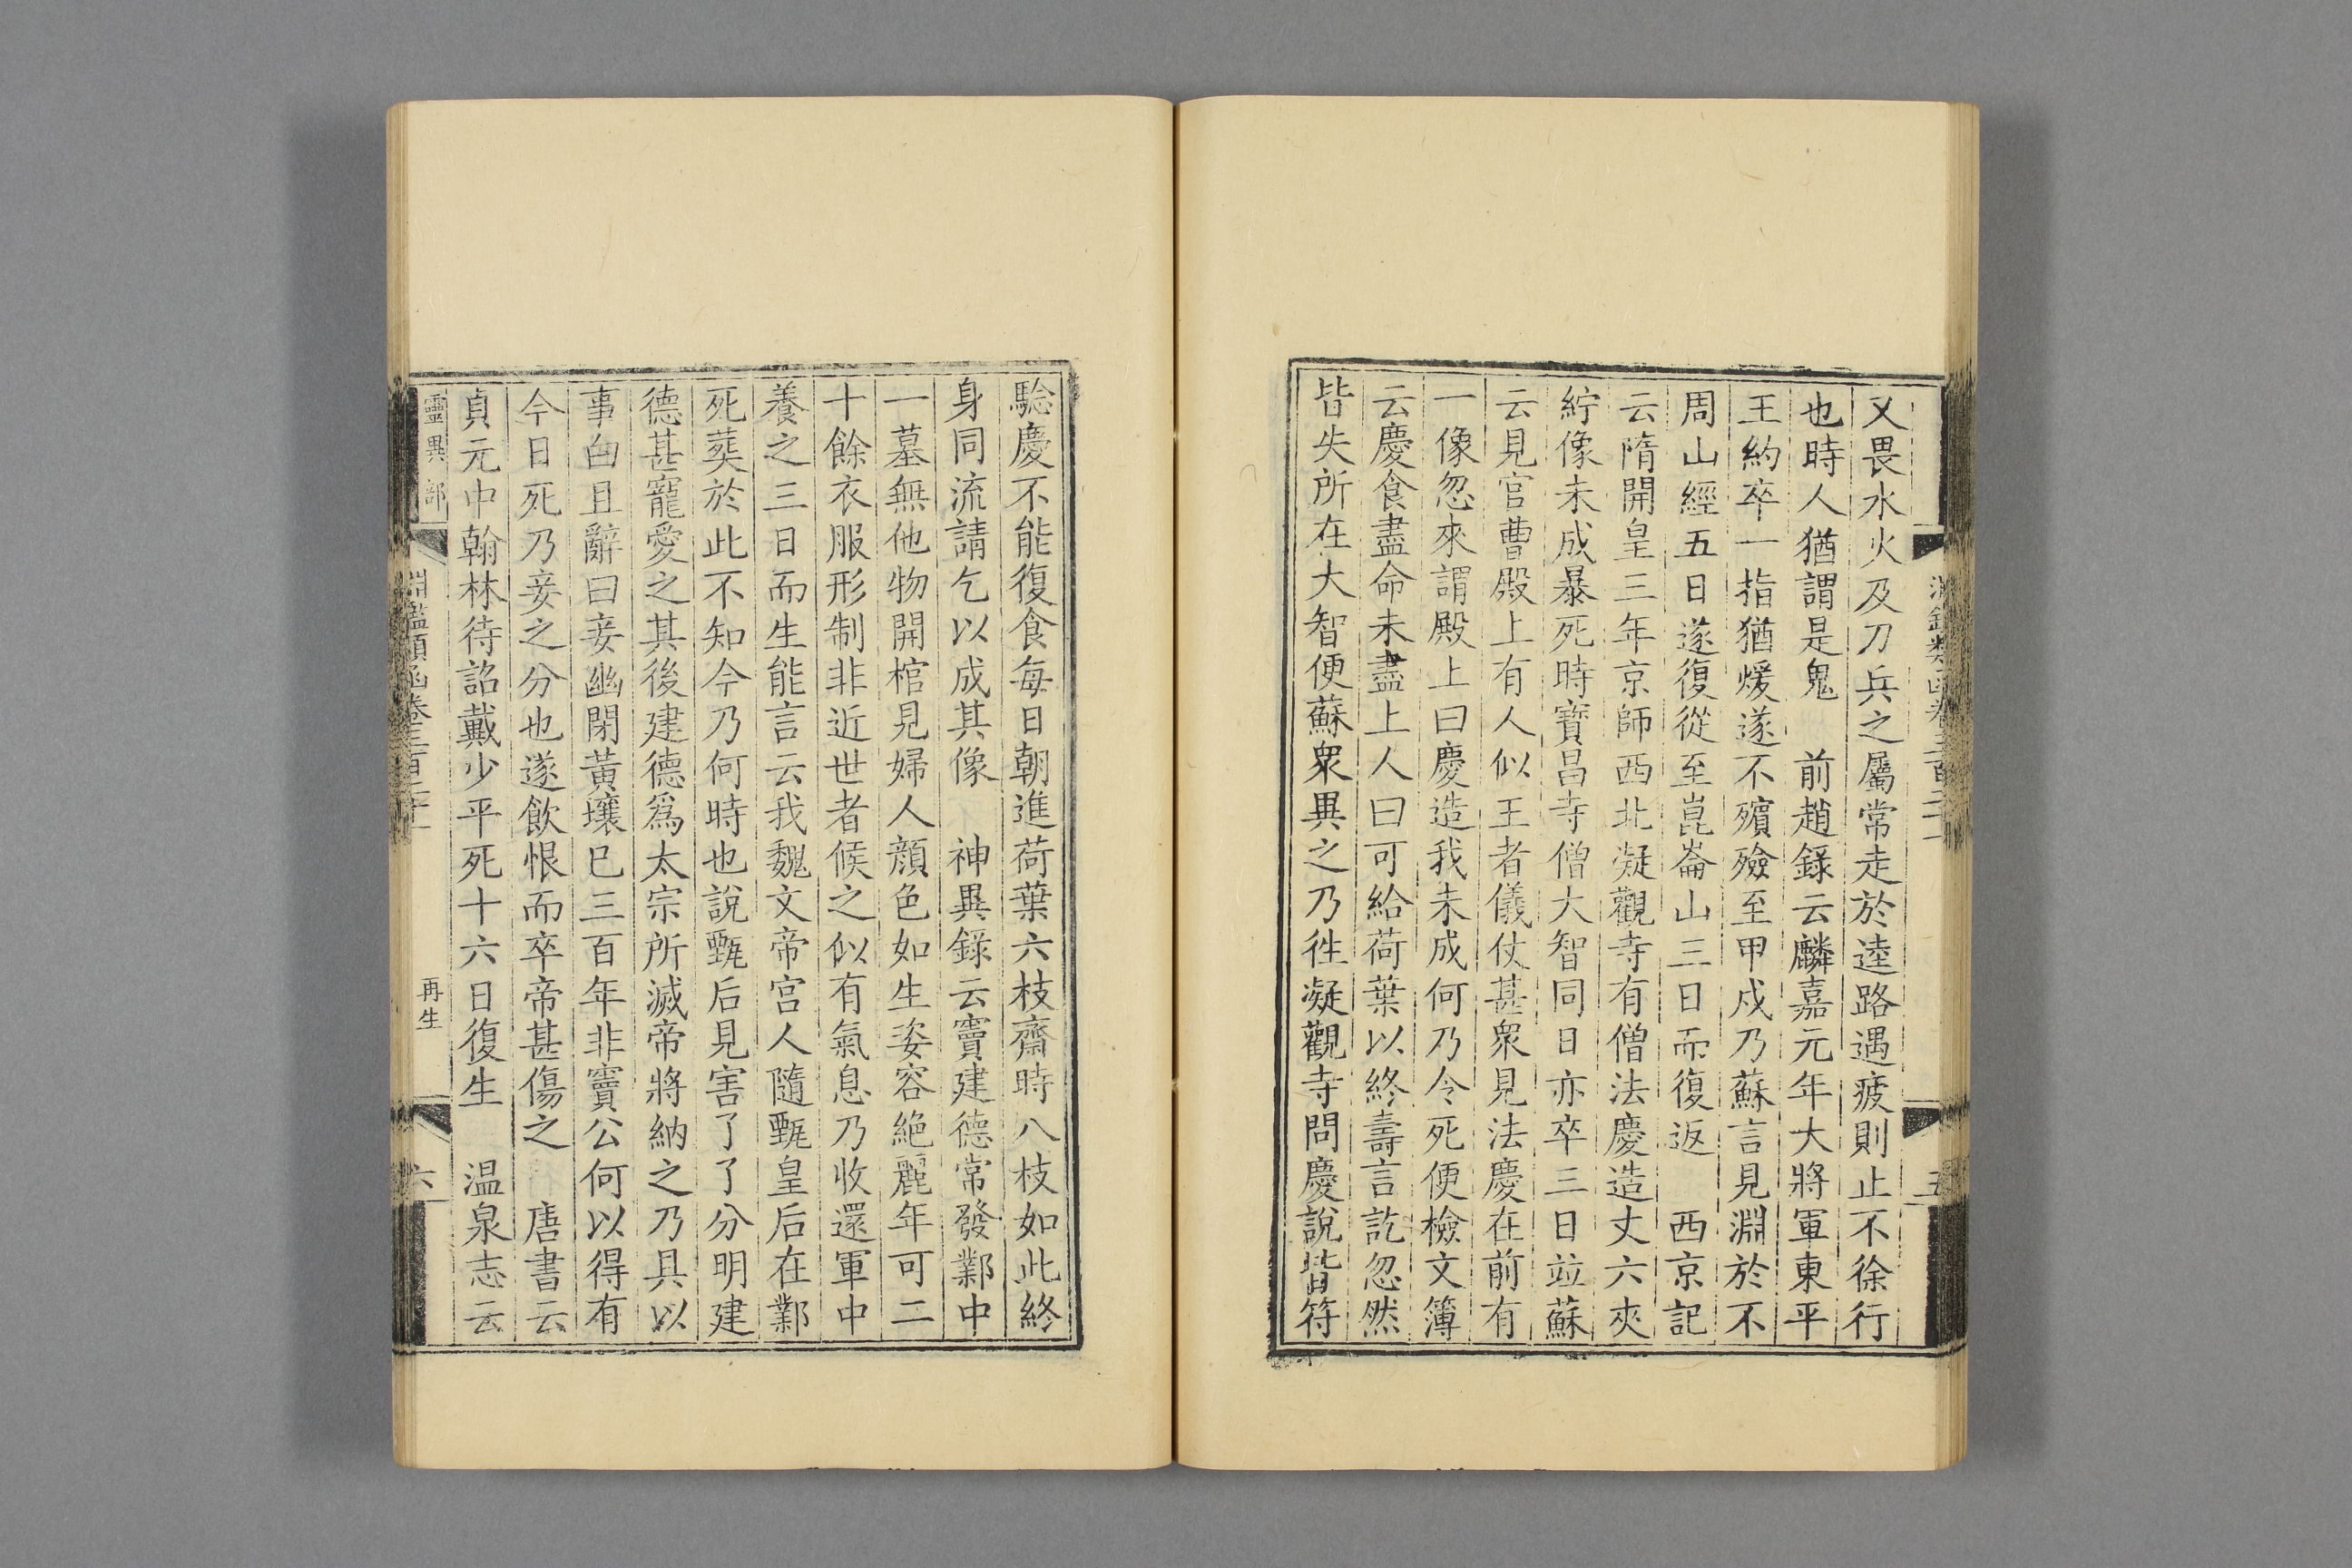 又畏水火及刀兵之屬常走於逵路遇疲則止不徐行
也時人猶謂是鬼　前趙錄云麟嘉元年大將軍東平
王約卒一指猶煖遂不殯殮至甲戌乃蘇言見淵於不
周山經五日遂復從至崑崙山三日而復返　西京記
云隋開皇三年京師西北凝觀寺有僧法慶造丈六夾
紵像未成暴死時寶昌寺僧大智同日亦卒三日竝蘇
云見官曹殿上有人似王者儀仗甚衆見法慶在前有
一像忽來謂殿上曰慶造我未成何乃令死便檢文簿
云慶食盡命未盡上人曰可給荷葉以終壽言訖忽然
皆失所在大智便蘇衆異之乃徃凝觀寺問慶說皆符
驗慶不能復食每日朝進荷葉六枝齋時八枝如此終
身同流請乞以成其像　神異錄云竇建德常發鄴中
一墓無他物開棺見婦人顔色如生姿容絕麗年可二
十餘衣服形制非近世者候之似有氣息乃收還軍中
養之三日而生能言云我魏文帝宮人隨甄皇后在鄴
死葬於此不知今乃何時也說甄后見害了了分明建
德甚寵愛之其後建德爲太宗所滅帝將納之乃具以
事白且辭曰妾幽閉黃壤已三百年非竇公何以得有
今日死乃妾之分也遂飲恨而卒帝甚傷之　唐書云
貞元中翰林待詔戴少平死十六日復生　温泉志云
靈異部　淵鑑類函卷三百二十一　再生　六